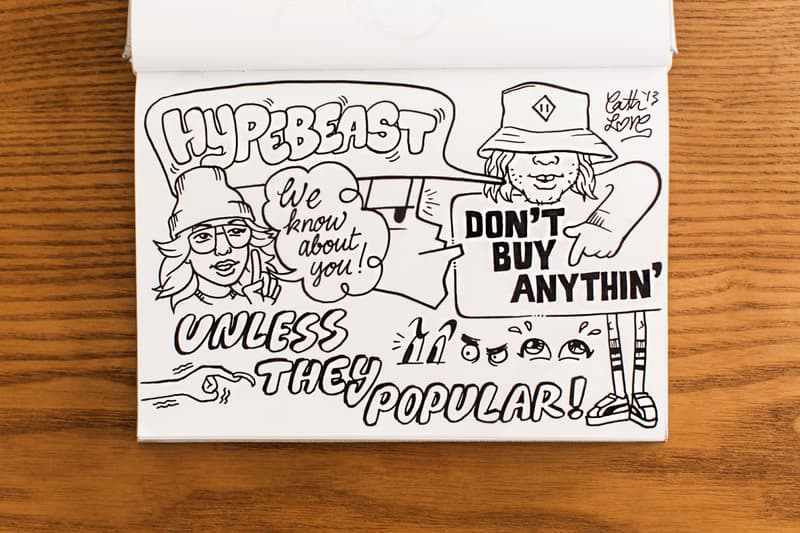 HYPEBEAST
Cath '13
Love
We
know
about
you!
DON'T
BUY
ANYTHIN'
UNLESS
THEY
POPULAR!